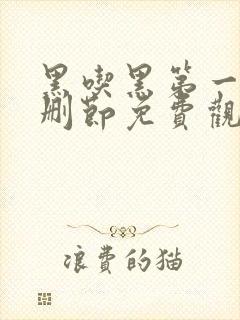 黑喫黑第一
刪節免費觀
浪費的猫